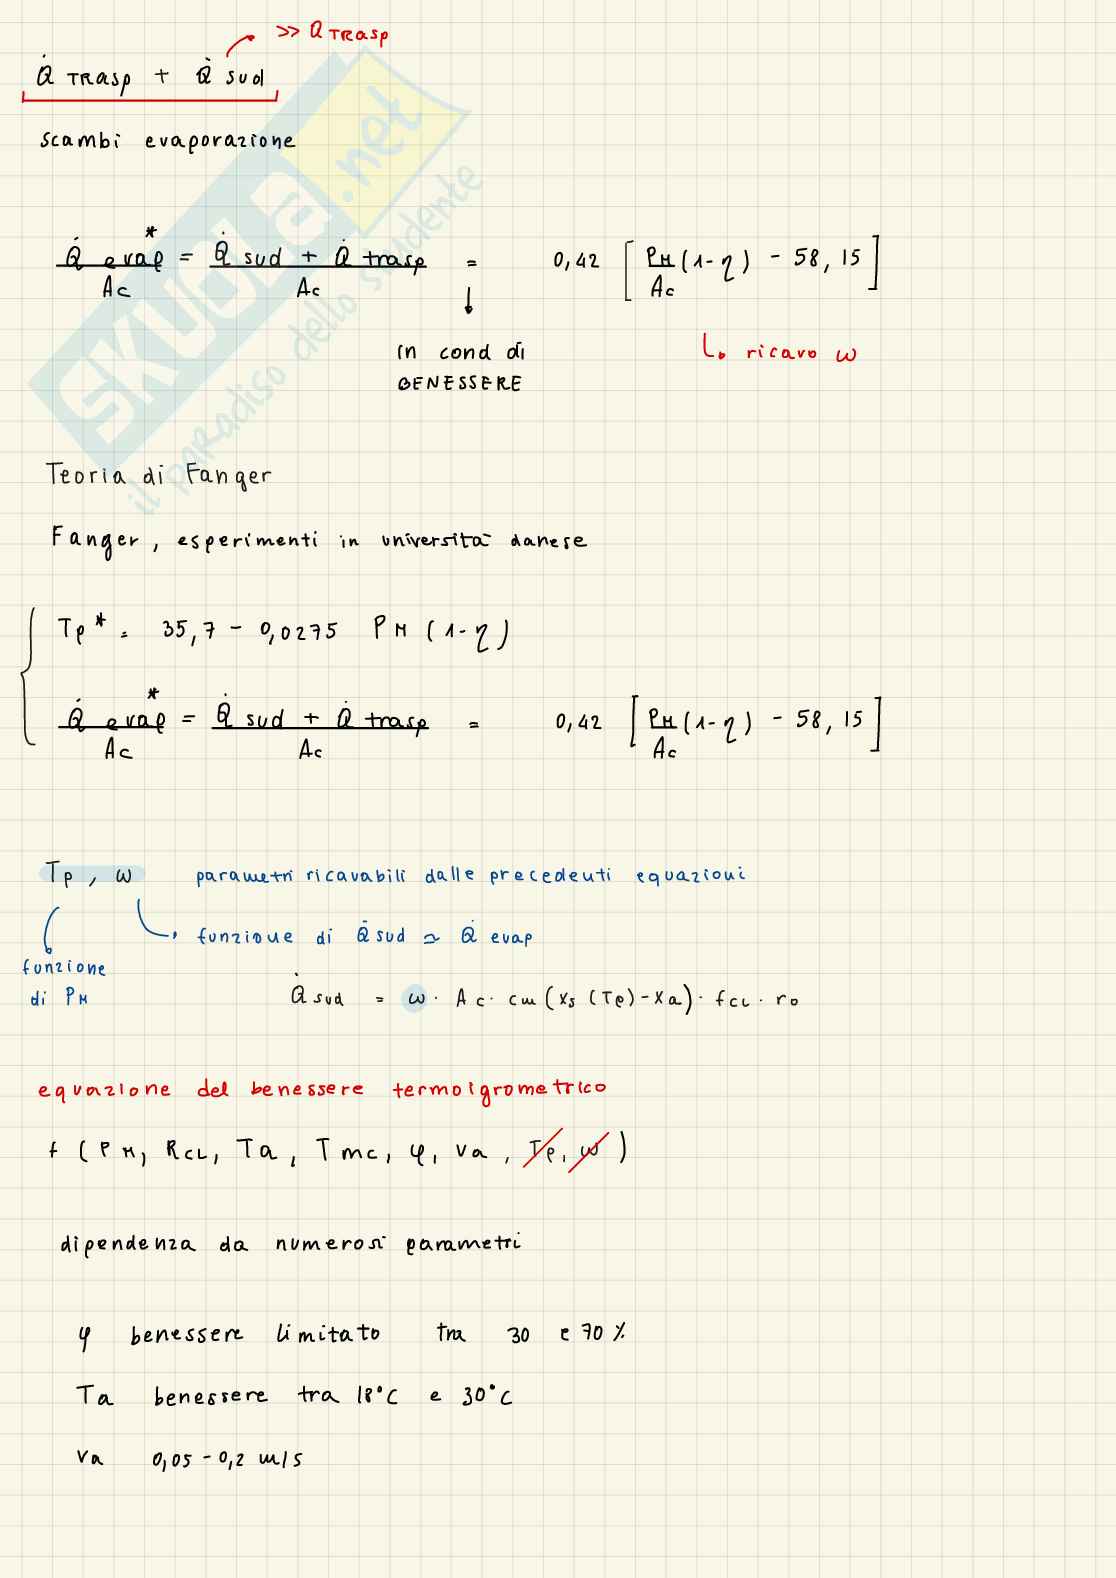 >> Q TRASP
Q̇ TRASP + Q̇ sud
scambi evaporazione
Q̇ evap* / Ac = Q̇ sud + Q̇ trasp / Ac = 0,42 [ PM/Ac (1-η) - 58,15 ]
in cond di
BENESSERE
ricavo ω
Teoria di Fanger
Fanger, esperimenti in università danese
Tp* = 35,7 - 0,0275 PM (1-η)
Q̇ evap* / Ac = Q̇ sud + Q̇ trasp / Ac = 0,42 [ PM/Ac (1-η) - 58,15 ]
Tp, ω parametri ricavabili dalle precedenti equazioni
funzione di Q̇ sud ≃ Q̇ evap
funzione
di PM
Q̇ sud = ω · Ac · cm (xs (Tp) - xa) · fcl · ro
equazione del benessere termoigrometrico
f (PM, RCL, Ta, Tmc, φ, va, Tp, ω)
dipendenza da numerosi parametri
φ benessere limitato tra 30 e 70 %
Ta benessere tra 18°C e 30°C
va 0,05 - 0,2 m/s
SKUOLA.net
il paradiso dello studente